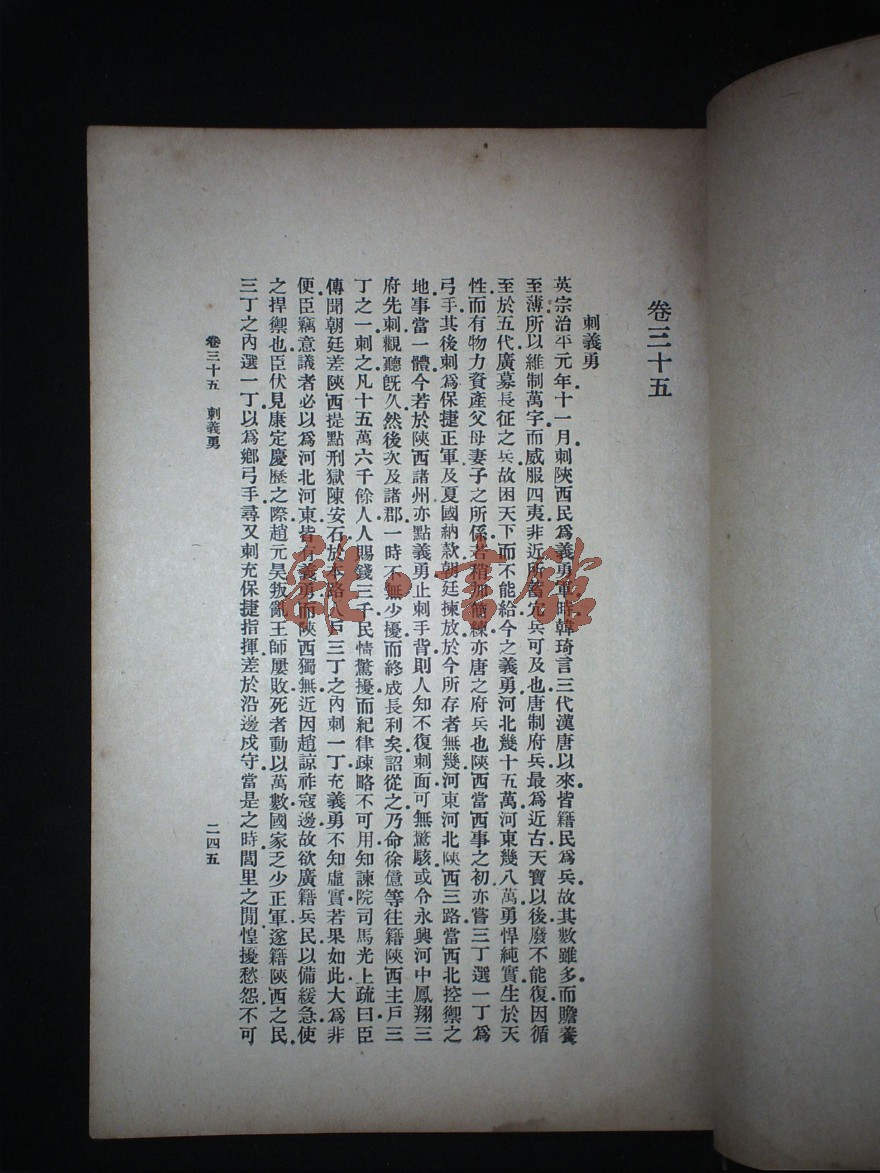 卷三十五
刺義勇
英宗治平元年十一月刺陝西民爲義勇軍時韓琦言三代漢唐以來皆籍民爲兵故其數雖多而贍養
至薄所以維制萬字而威服四夷非近所蓄冗兵可及也唐制府兵最爲近古天寶以後廢不能復因循
至於五代廣募長征之兵故困天下而不能給今之義勇河北幾十五萬河東幾八萬勇悍純實生於天
性而有物力資產父母妻子之所係若稍加簡練亦唐之府兵也陝西當西事之初亦嘗三丁選一丁爲
弓手其後刺爲保捷正軍及夏國納款朝廷揀放於今所存者無幾河東河北陝西三路當西北控禦之
地事當一體今若於陝西諸州亦點義勇止刺手背則人知不復刺面可無驚駭或令永興河中鳳翔三
府先刺觀聽既久然後次及諸郡一時不無少擾而終成長利矣詔從之乃命徐億等往籍陝西主戶三
丁之一刺之凡十五萬六千餘人人賜錢三千民情驚擾而紀律疎略不可用知諫院司馬光上疏曰臣
傳聞朝廷差陝西提點刑獄陳安石於本路人戶三丁之內刺一丁充義勇不知虛實若果如此大爲非
便臣竊意議者必以爲河北河東皆有義勇而陝西獨無近因趙諒祚寇邊故欲廣籍兵民以備緩急使
之捍禦也臣伏見康定慶歷之際趙元昊叛亂王師屢敗死者動以萬數國家乏少正軍遂籍陝西之民
三丁之內選一丁以爲鄉弓手尋又刺充保捷指揮差於沿邊戍守當是之時閭里之閒惶擾愁怨不可
卷三十五 刺義勇
二四五
雜·書館